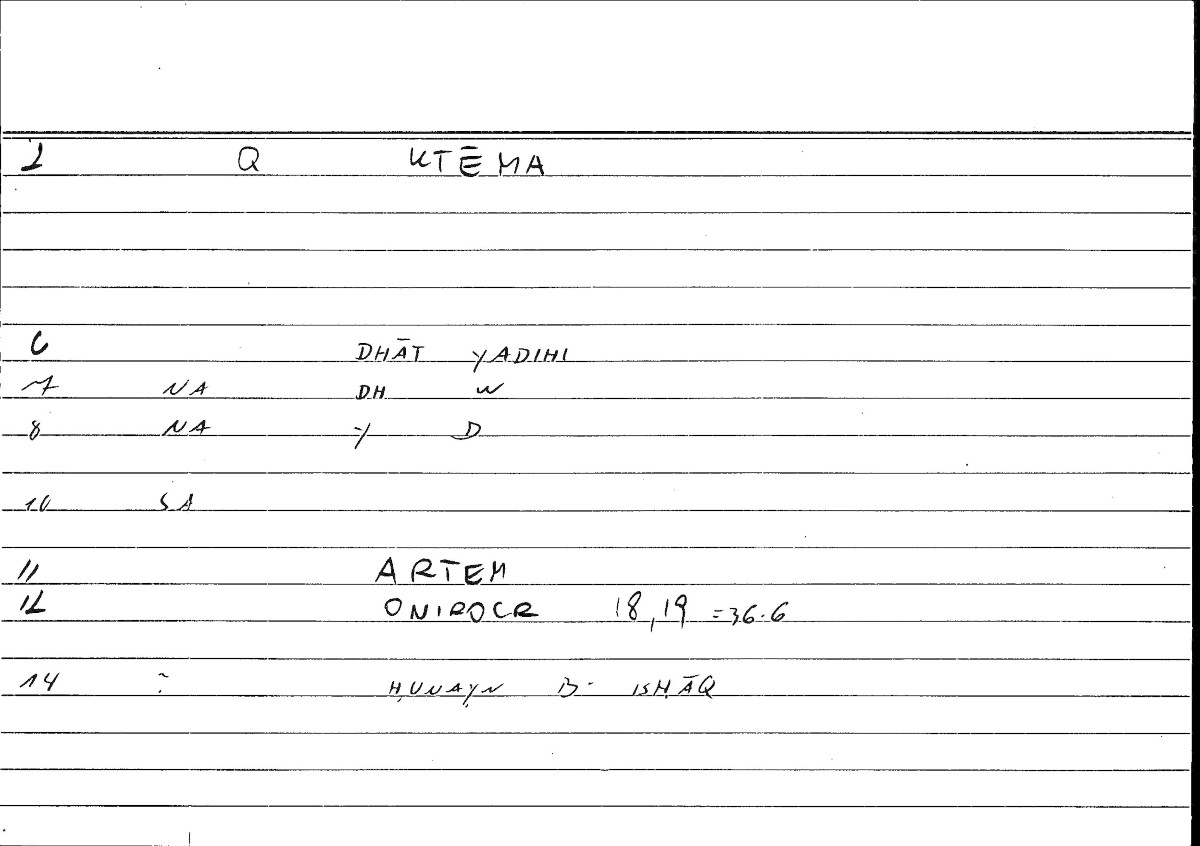 1 Q KTĒMA
6 DHĀT YADIHI
7 NA DH W
8 NA Y D
10 SA
11 ARTEM
12 ONIROCR 18,19 =36.6
14 ? ḤUNAYN B- ISHĀQ